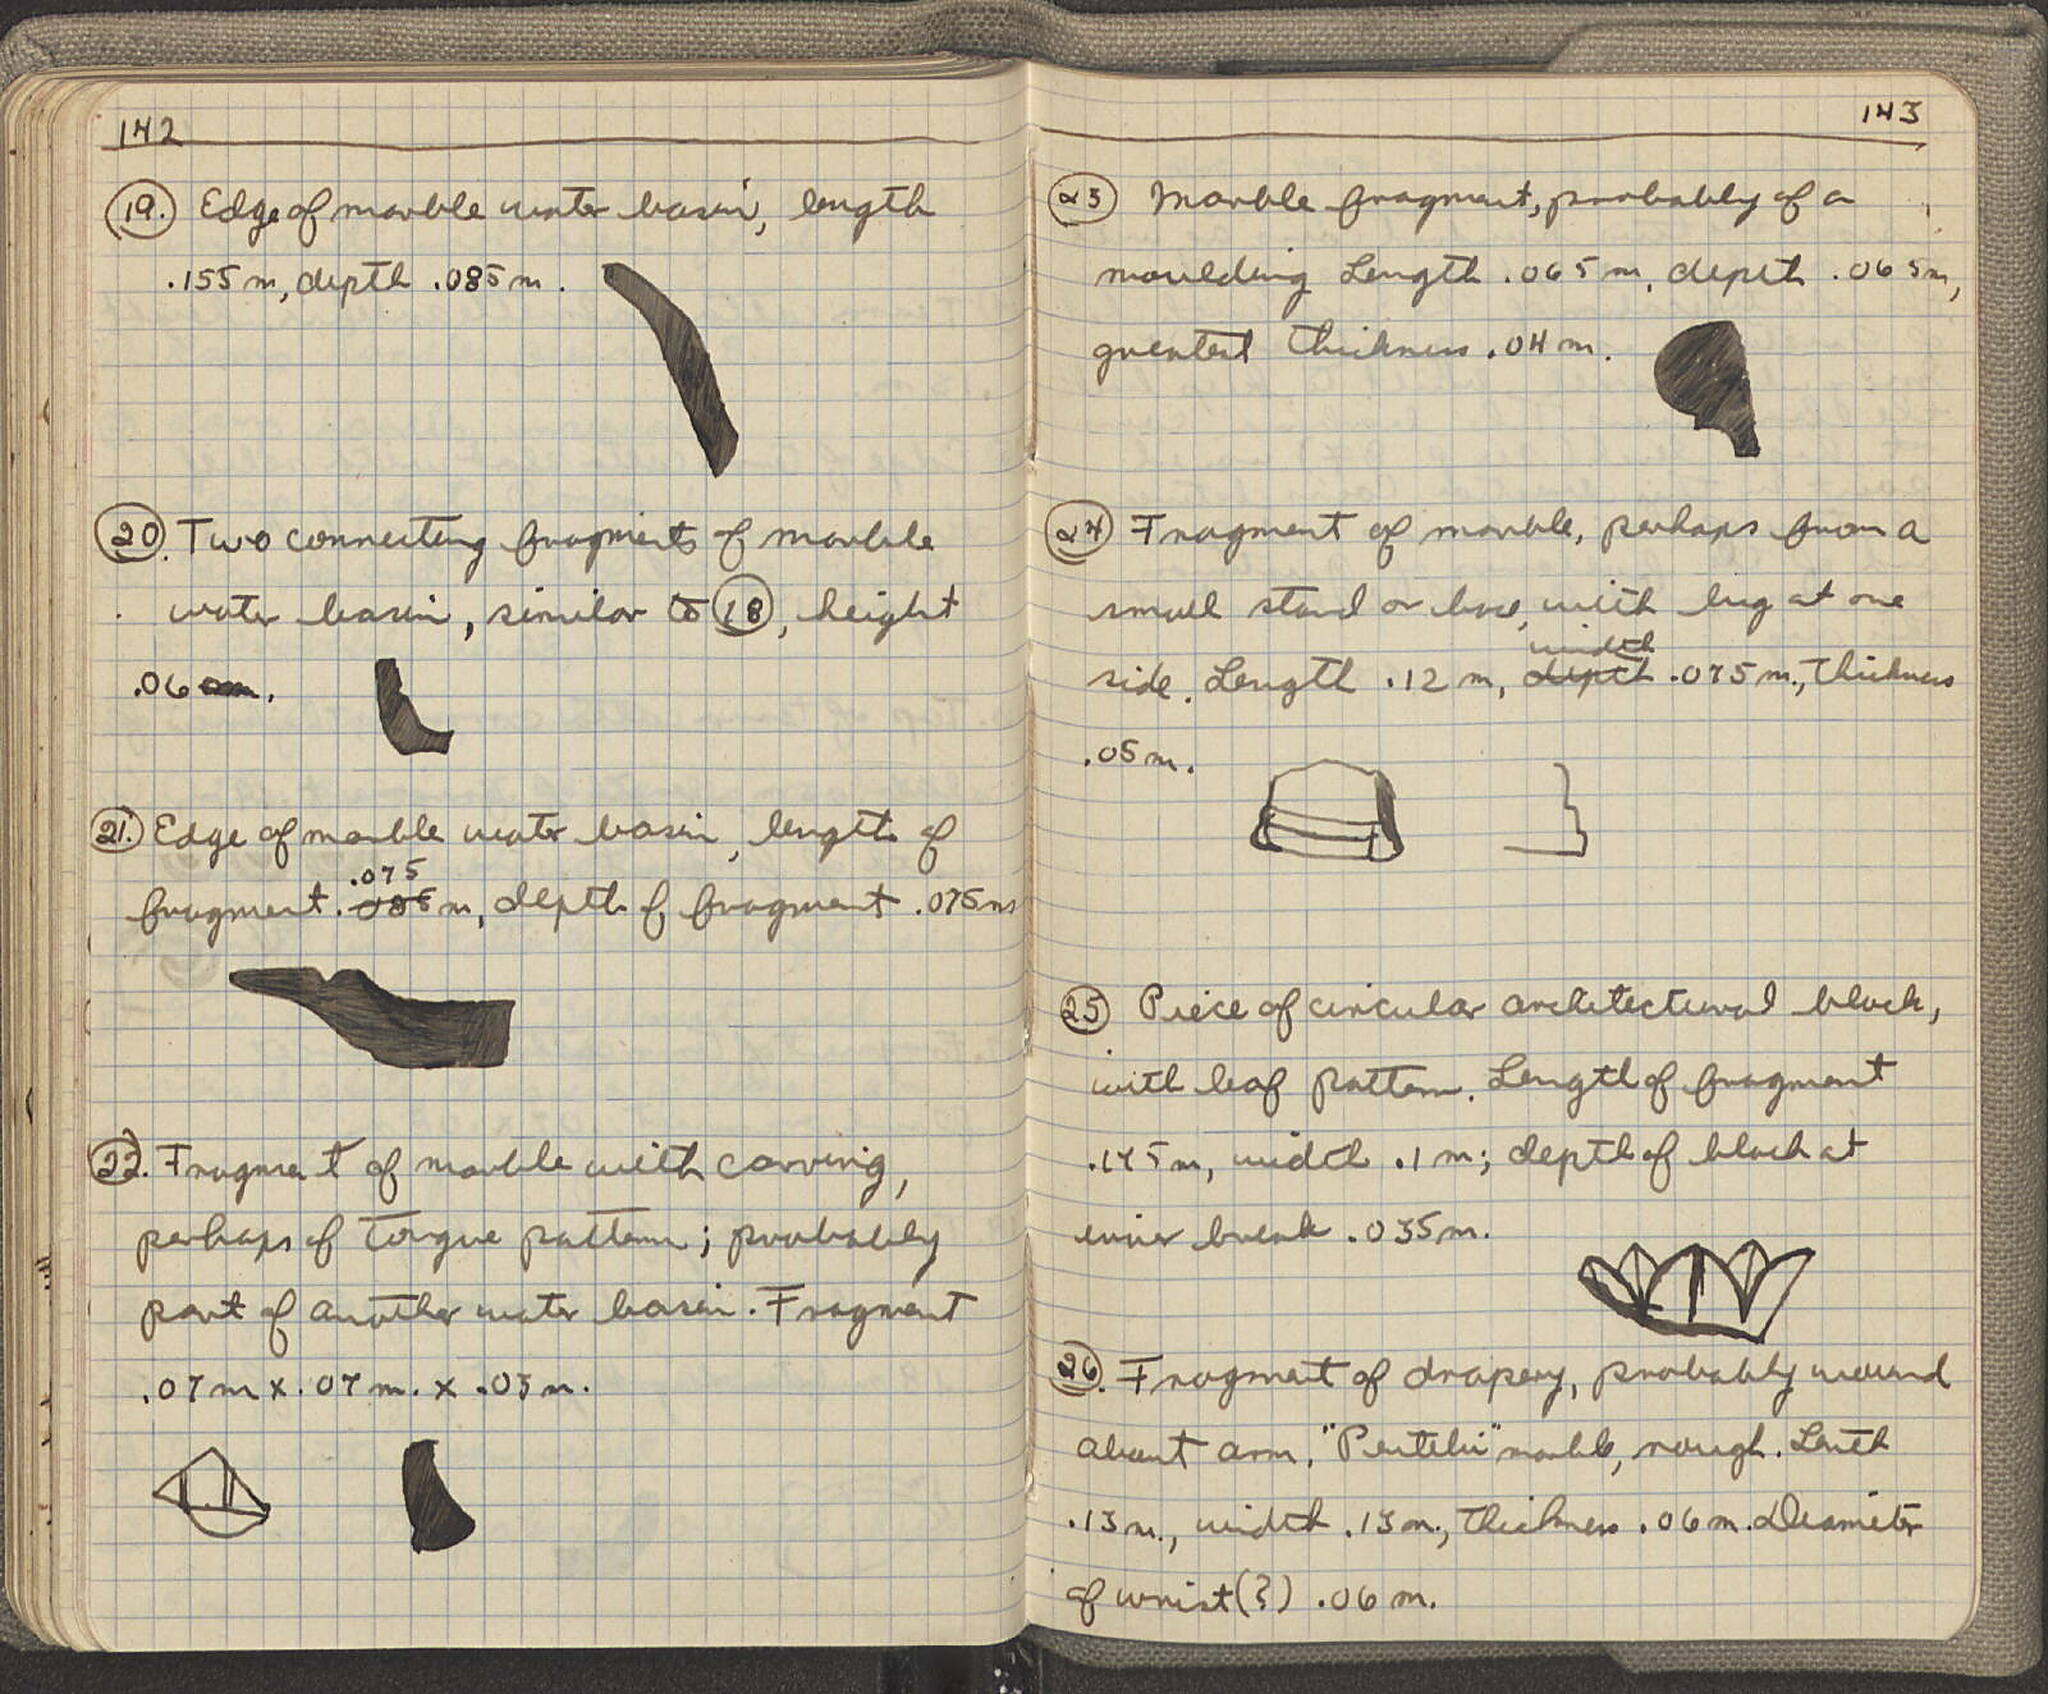 142
19. Edge of marble water basin, length
.155 m, depth .085 m.
20. Two connecting fragments of marble
water basin, similar to 18, height
.06 m.
21. Edge of marble water basin, length of
.075
fragment .085 m, depth of fragment .075 m
22. Fragment of marble with carving,
perhaps of tongue pattern; probably
part of another water basin. Fragment
.07 m x .07 m. x .03 m.
143
23 Marble fragment, probably of a
moulding Length .065 m, depth .065 m,
greatest thickness .04 m.
24 Fragment of marble, perhaps from a
small stand or base, with lug at one
width
side. Length .12 m, depth .075 m., thickness
.05 m.
25 Piece of circular architectural block,
with leaf pattern. Length of fragment
m, width .1 m; depth of block at
inner break .035 m.
26. Fragment of drapery, probably wound
about arm, "Pentelic" marble, rough. Lenth
.13 m., width .13 m., thickness .06 m. Diameter
of wrist(?) .06 m.